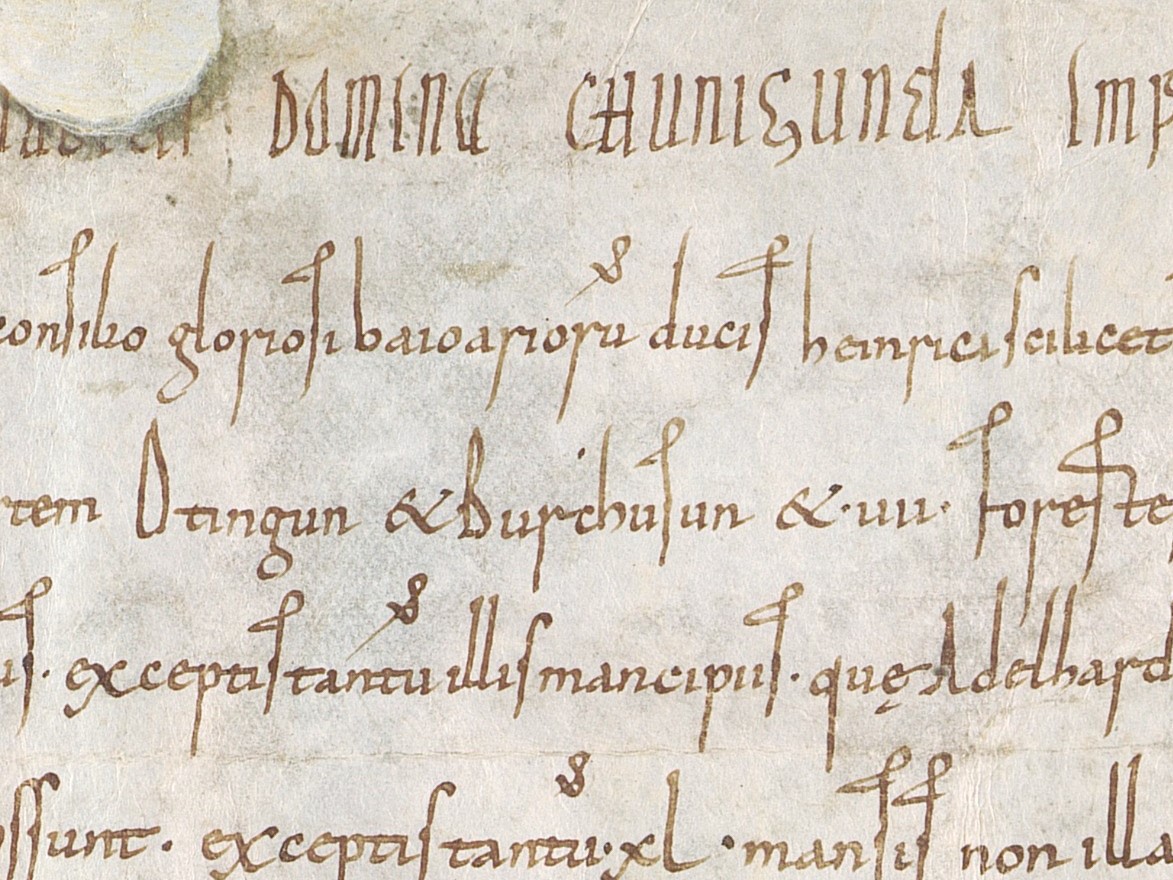 DOMINA CHUNIGUNDA IMP
consilio gloriosi baioariorū ducis heinrici scilicet
rtem Otingun & Burchusun & ·uii· foreste
is· exceptis tantū illis mancipiis· quę Adelhard
ossunt· exceptis tantū· xl · mansis non illa